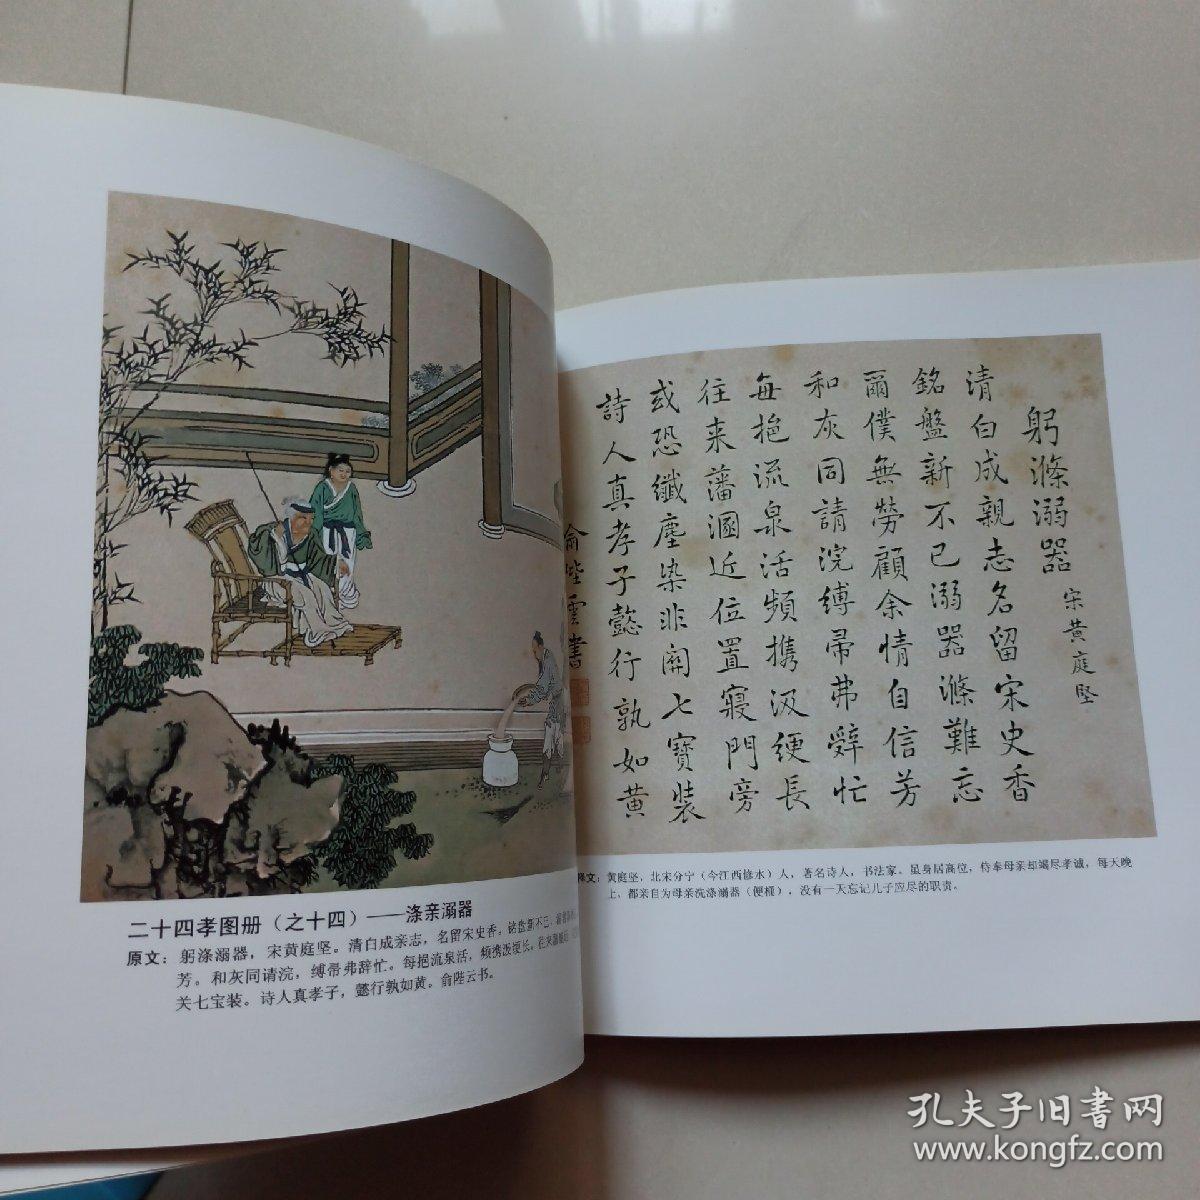 二十四孝图册（之十四）——涤亲溺器
原文：躬涤溺器，宋黄庭坚。清白成亲志，名留宋史香。铭盘新不已，溺
芳。和灰同请浣，缚帚弗辞忙。每挹流泉活，频携汲绠长。往来
关七宝装。诗人真孝子，懿行孰如黄。俞陛云书。
躬滌溺器
宋黄庭堅
清白成親志名留宋史香
銘盤新不已溺器滌難忘
爾僕無勞顧余情自信芳
和灰同請浣縛帚弗辤忙
每挹流泉活頻携汲綆長
往来藩溷近位置寢門旁
或恐纖塵染非關七寶装
詩人真孝子懿行孰如黄
俞陛雲書
释文：黄庭坚，北宋分宁（今江西修水）人，著名诗人，书法家。虽身居高位，侍奉母亲却竭尽孝诚，每天晚
上，都亲自为母亲洗涤溺器（便桶），没有一天忘记儿子应尽的职责。
孔夫子旧書网
www.kongfz.com